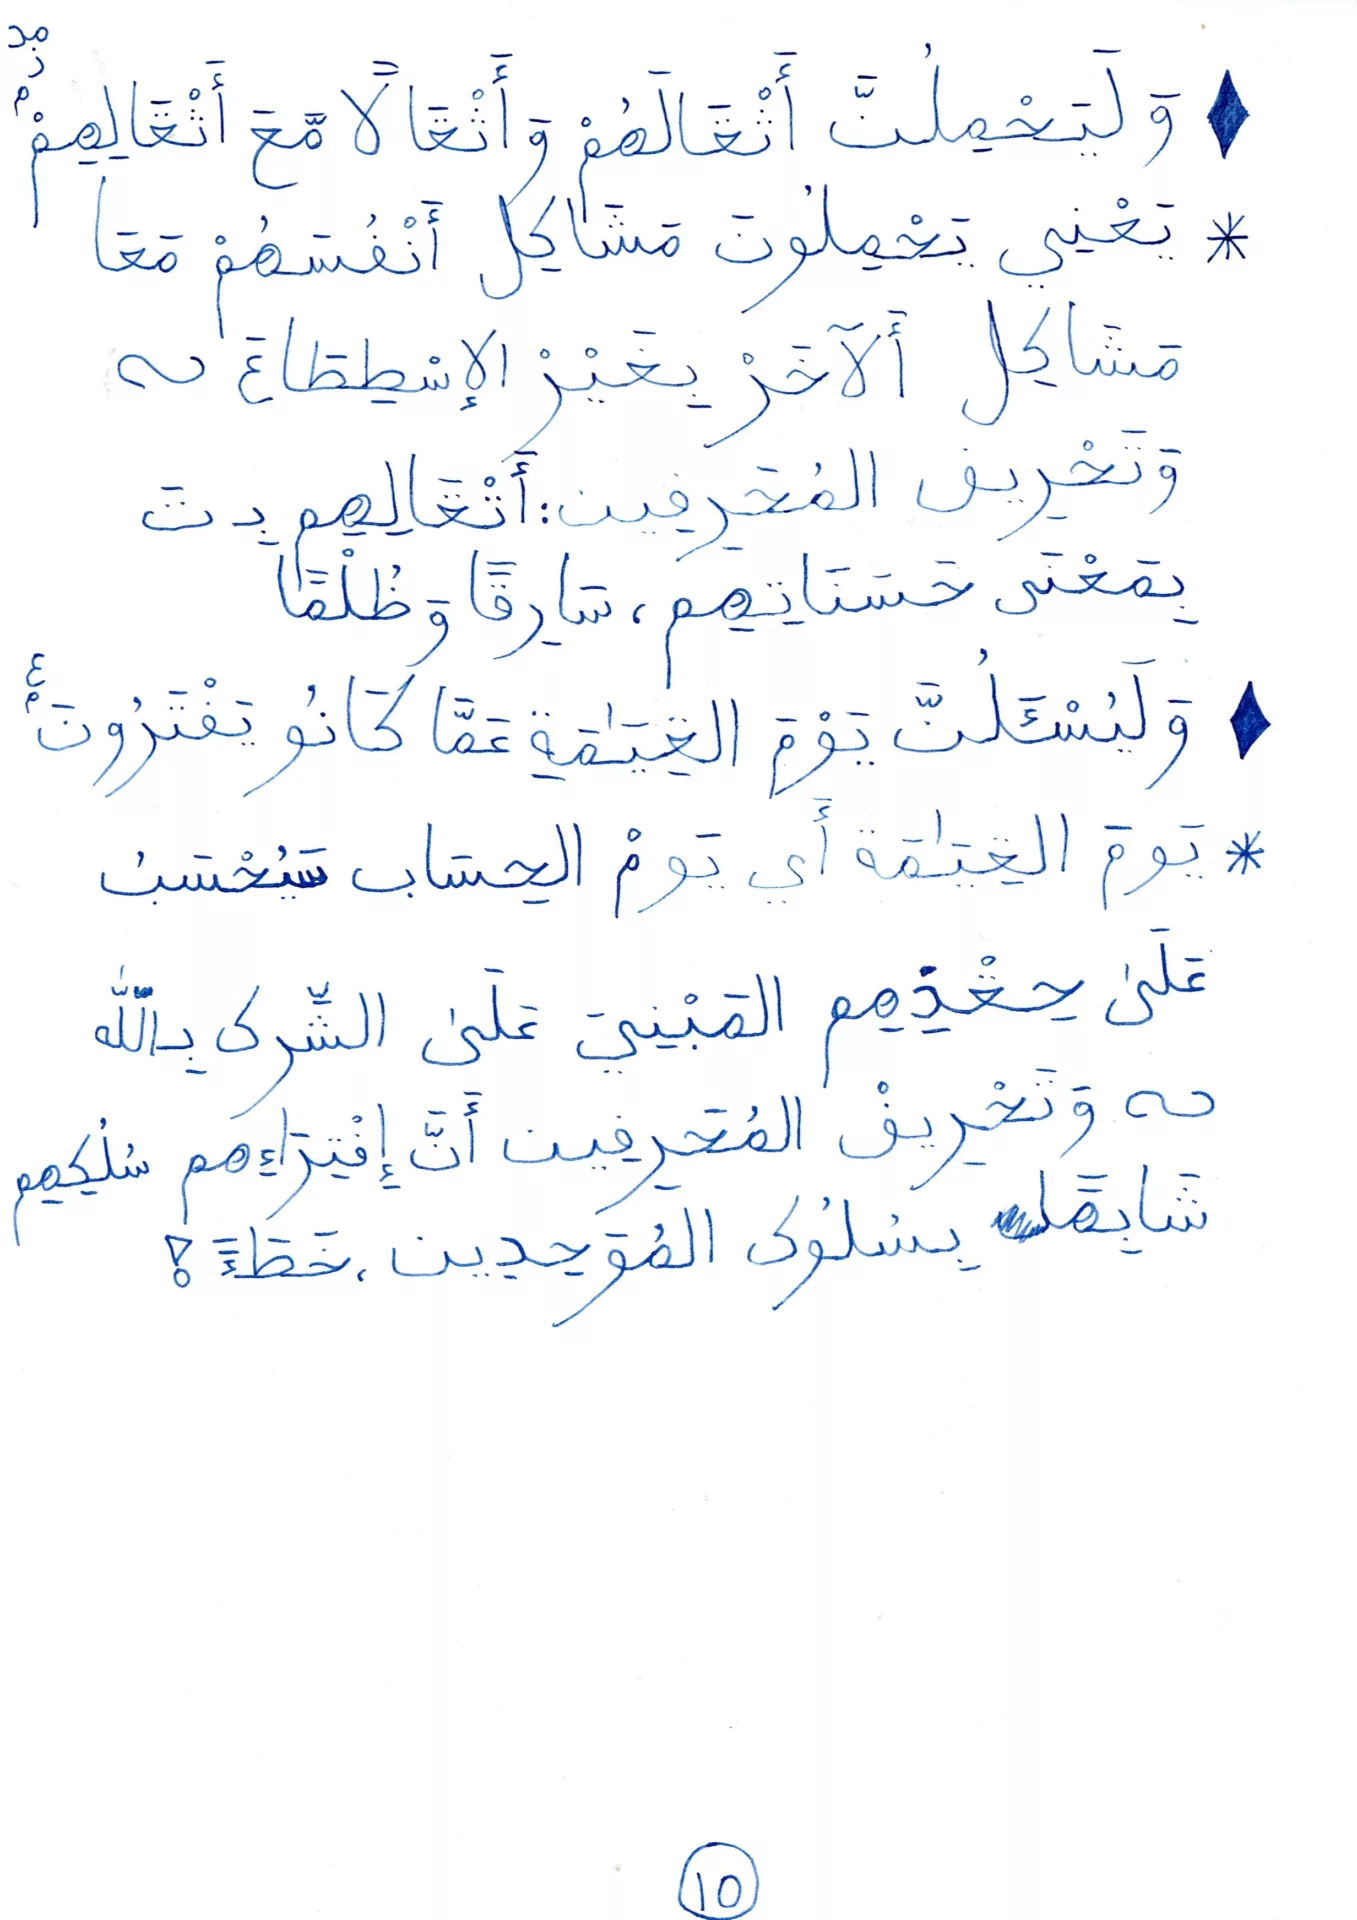 ♦ وَلَيَحْمِلُنَّ أَثْقَالَهُمْ وَأَثْقَالًا مَّعَ أَثْقَالِهِمْ
* يَعْنِي يَحْمِلُونَ مَشَاكِل أَنْفُسَهُمْ مَعَا
مَشَاكِل أَلآخَرْ بِغَيْرْ الإسْطِطَاعَ ~
وَتَحْرِيف المُحَرِفِين: أَثْقَالِهِم بِـ تَ
بِمَعْنَى حَسَنَاتِهِم، سَارِقًا وَظُلْمًا
♦ وَلَيُسْـَٔلُنَّ يَوْمَ القِيَـٰمَةِ عَمَّا كَانُو يَفْتَرُونَ
* يَومَ القِيَـٰمَة أَي يَومْ الحِسَاب سَيُحْسَبُ
عَلَىٰ حِقْدِهِم المَبْنِيَ عَلَىٰ الشِّرك بِاللّٰه
~ وَتَحْرِيفْ المُحَرِفِين أَنَّ إِفْتِرَاءِهِم سُلُكِهِم
شَابِهًا بِسُلُوك المُوَحِدِين، خَطَأً؟
10